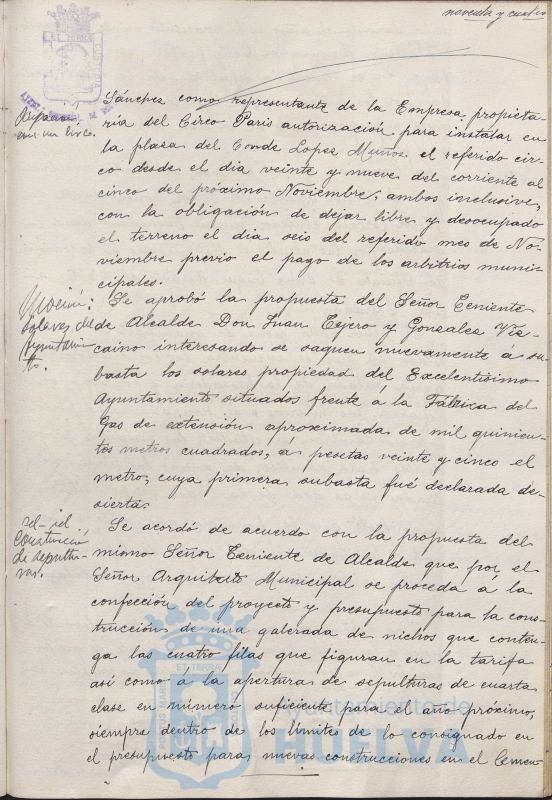 noventa y cuatro
Sánchez como representante de la Empresa propieta-
ria del Circo Paris autorización para instalar en
la plaza del Conde Lopez Muñoz el referido cir-
co desde el dia veinte y nueve del corriente al
cinco del próximo Noviembre, ambos inclusive,
con la obligación de dejar libre y desocupado
el terreno el dia seis del referido mes de No-
viembre previo el pago de los arbitrios muni-
cipales.
un circo.
Moción:
solares del
Ayuntamien-
to.
Se aprobó la propuesta del Señor Teniente
de Alcalde Don Juan Tejero y Gonzalez Viz-
caino interesando se saquen nuevamente á su-
basta los solares propiedad del Excelentísimo
Ayuntamiento situados frente a la Fábrica del
Gas de extensión aproximada de mil quinien-
tos metros cuadrados, á pesetas veinte y cinco el
metro, cuya primera subasta fué declarada de-
sierta.
id - id
Construcción
de sepultu-
ras.
Se acordó de acuerdo con la propuesta del
mismo Señor Teniente de Alcalde que por el
Señor Arquitecto Municipal se proceda á la
confección del proyecto y presupuesto para la cons-
trucción de una galerada de nichos que conten-
ga las cuatro filas que figuran en la tarifa
así como á la apertura de sepulturas de cuarta
clase en número suficiente para el año próximo,
siempre dentro de los límites de lo consignado en
el presupuesto para nuevas construcciones en el Cemen-
PORTUS MARIS
ET TERRA
CUSTODIA
Ayuntamiento de
HUELVA